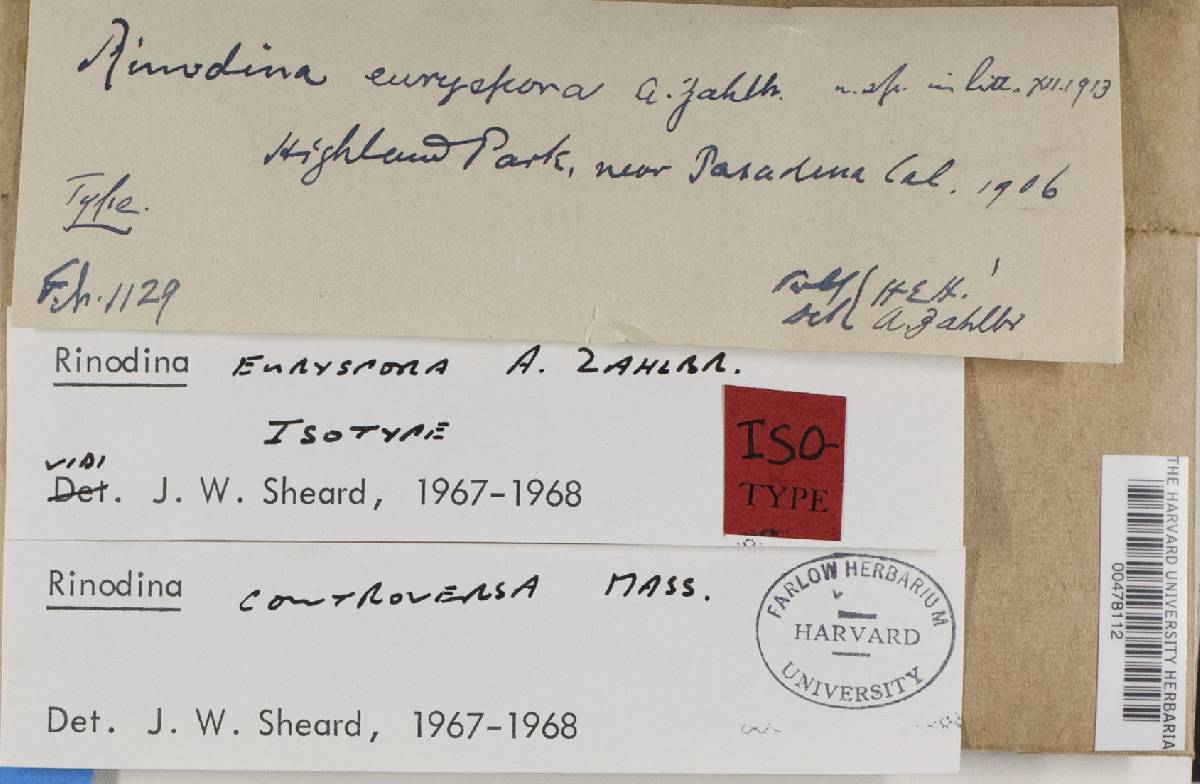 Rinodina euryspora A. Zahlbr. n. sp. in litt. XII.1913
Highland Park, near Pasadena Cal. 1906
Type.
1129
H.E.H.
A. Zahlbr
Rinodina EURYSPORA A. ZAHLBR.
ISOTYPE
VIDI
Det. J. W. Sheard, 1967-1968
ISO-
TYPE
Rinodina CONTROVERSA MASS.
Det. J. W. Sheard, 1967-1968
FARLOW HERBARIUM
HARVARD
UNIVERSITY
THE HARVARD UNIVERSITY HERBARIA
00478112